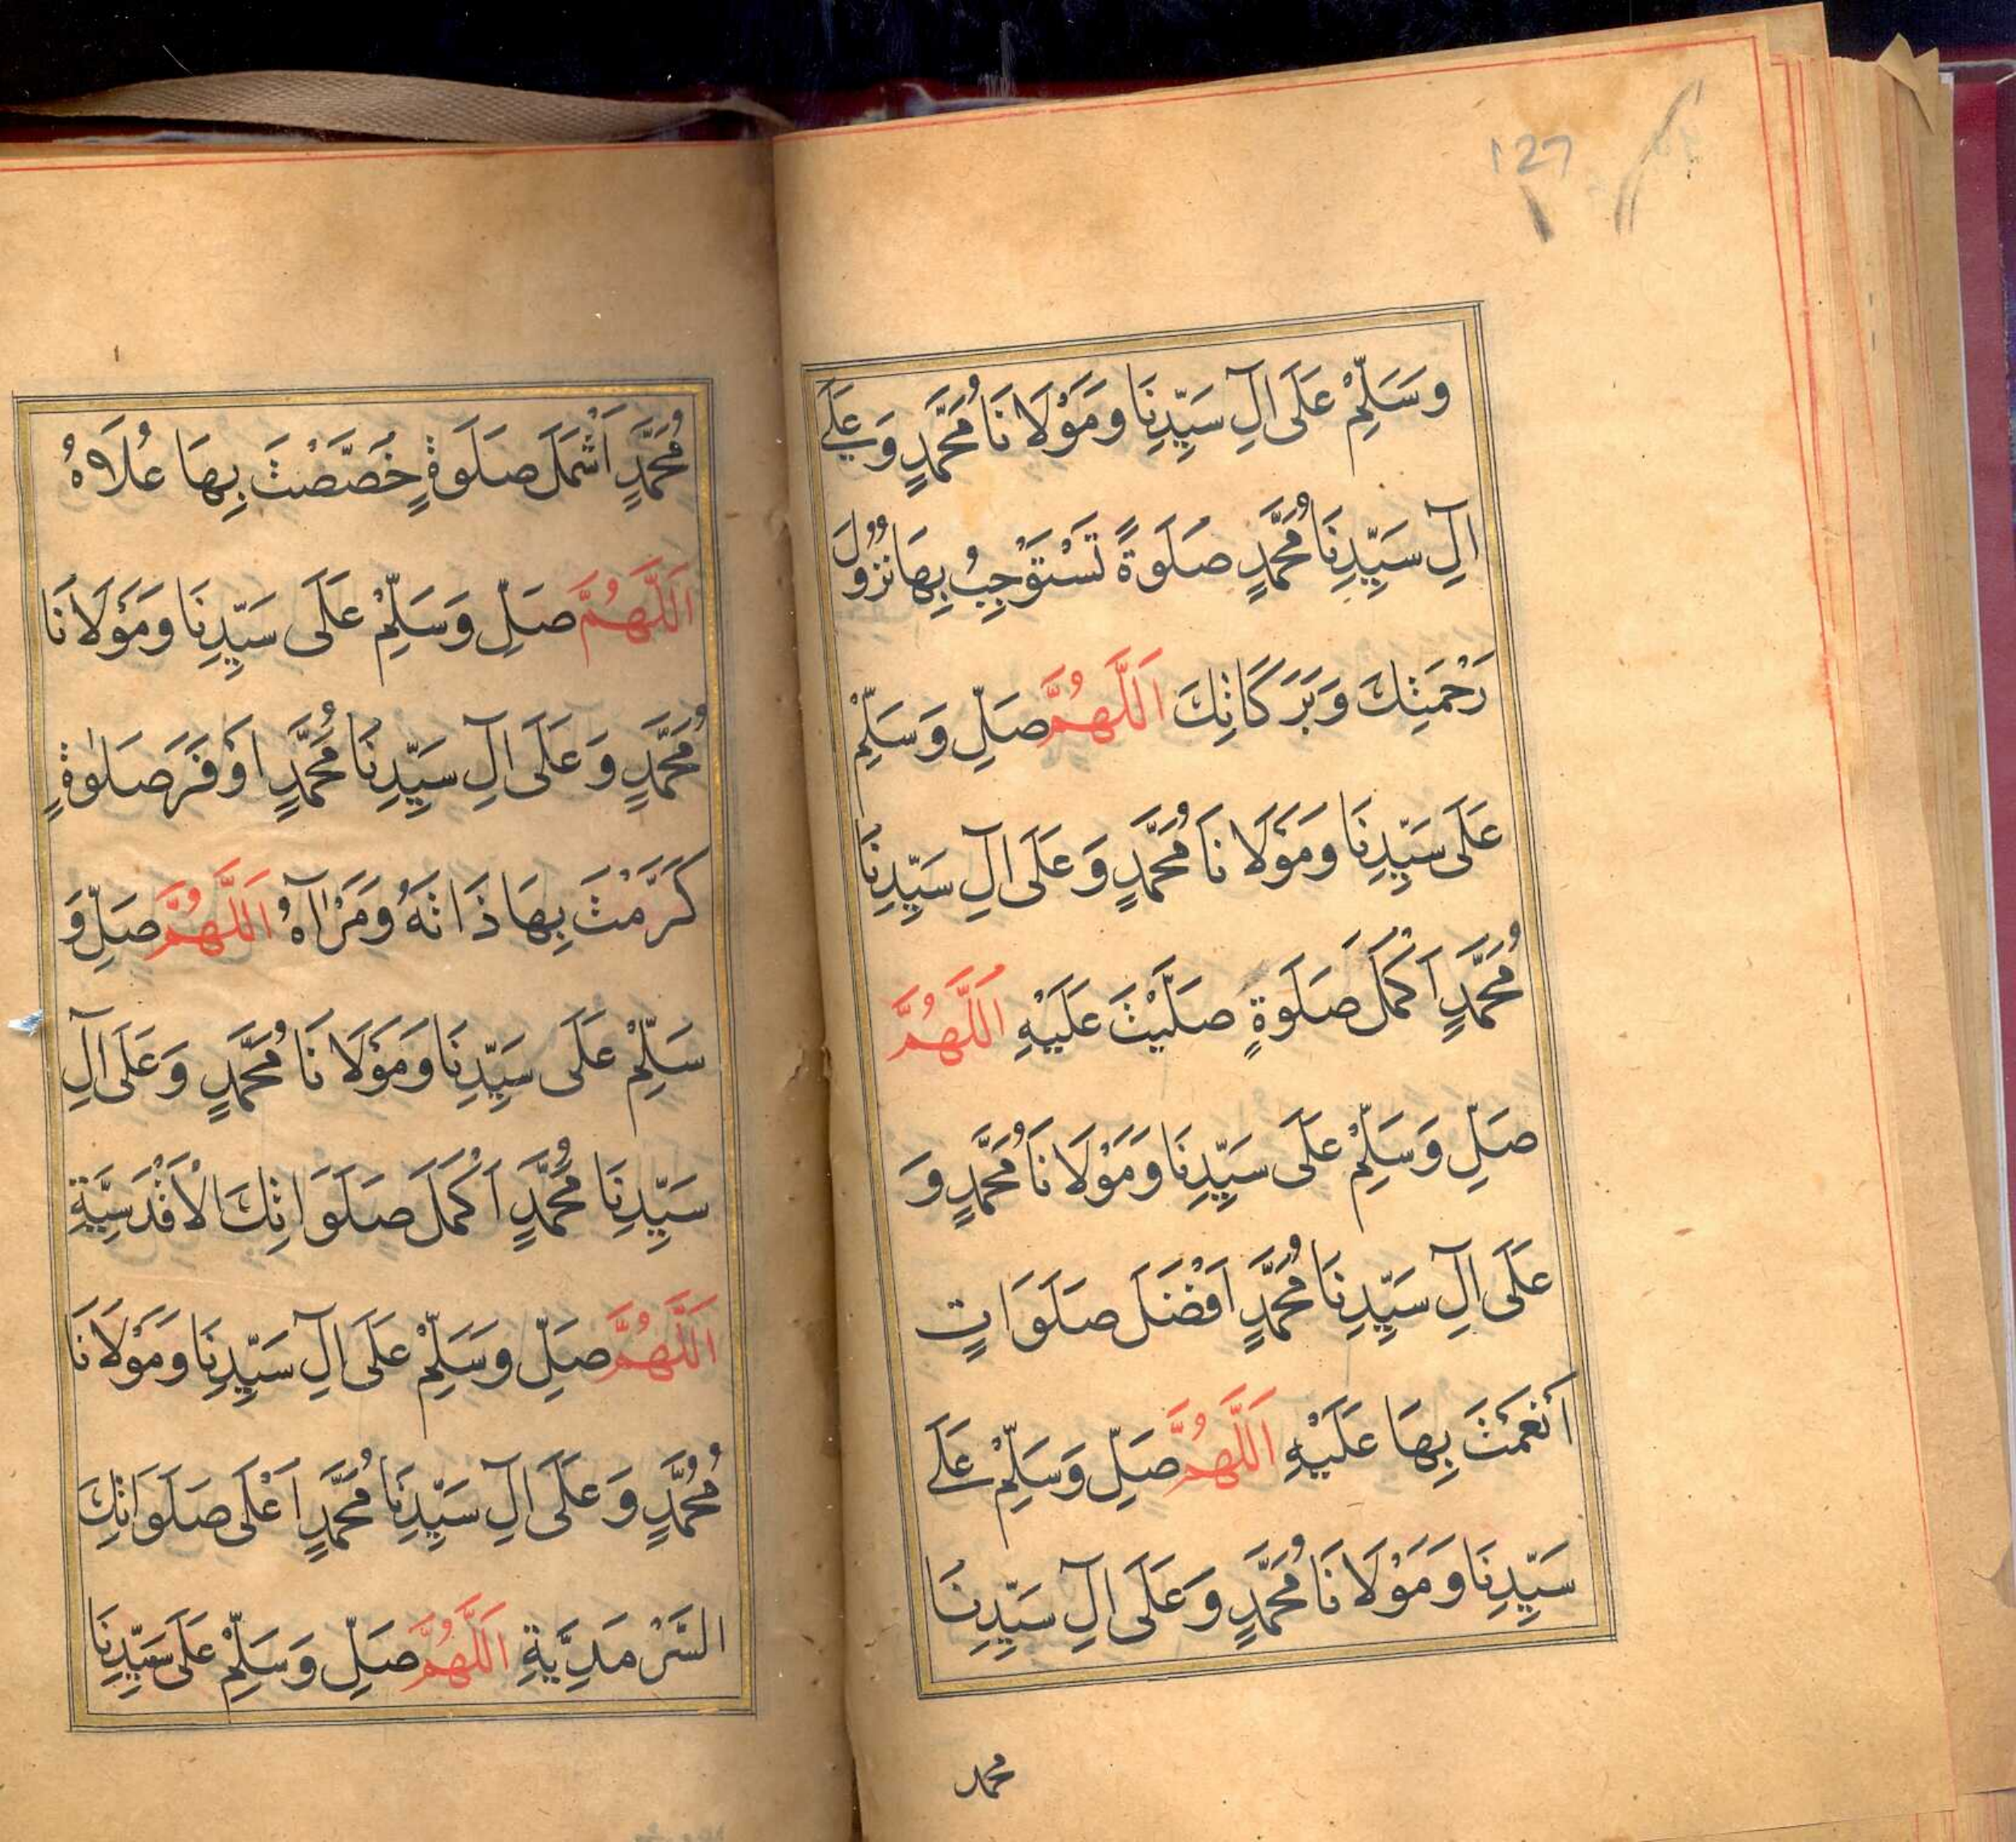 127
وَسَلِّمْ عَلَى اٰلِ سَيِّدِنَا وَمَوْلَانَا مُحَمَّدٍ وَعَلٰى
اٰلِ سَيِّدِنَا مُحَمَّدٍ صَلَوةً تَسْتَوْجِبُ بِهَا نُزُولَ
رَحْمَتِكَ وَبَرَكَاتِكَ اَللّٰهُمَّ صَلِّ وَسَلِّمْ
عَلَى سَيِّدِنَا وَمَوْلَانَا مُحَمَّدٍ وَعَلَى اٰلِ سَيِّدِنَا
مُحَمَّدٍ اَكْمَلَ صَلَوةٍ صَلَّيْتَ عَلَيْهِ اَللّٰهُمَّ
صَلِّ وَسَلِّمْ عَلَى سَيِّدِنَا وَمَوْلَانَا مُحَمَّدٍ وَ
عَلَى اٰلِ سَيِّدِنَا مُحَمَّدٍ اَفْضَلَ صَلَوَاتٍ
اَنْعَمْتَ بِهَا عَلَيْهِ اَللّٰهُمَّ صَلِّ وَسَلِّمْ عَلٰى
سَيِّدِنَا وَمَوْلَانَا مُحَمَّدٍ وَعَلَى اٰلِ سَيِّدِنَا
محمد
مُحَمَّدٍ اَشْمَلَ صَلَوةٍ خَصَّصْتَ بِهَا عُلَاهُ
اَللّٰهُمَّ صَلِّ وَسَلِّمْ عَلَى سَيِّدِنَا وَمَوْلَانَا
مُحَمَّدٍ وَعَلَى اٰلِ سَيِّدِنَا مُحَمَّدٍ اَوْفَرَ صَلٰوةٍ
كَرَّمْتَ بِهَا ذَاتَهُ وَمَرْاٰهُ اَللّٰهُمَّ صَلِّ وَ
سَلِّمْ عَلَى سَيِّدِنَا وَمَوْلَانَا مُحَمَّدٍ وَعَلَى اٰلِ
سَيِّدِنَا مُحَمَّدٍ اَكْمَلَ صَلَوَاتِكَ الْاَقْدَسِيَّةِ
اَللّٰهُمَّ صَلِّ وَسَلِّمْ عَلَى اٰلِ سَيِّدِنَا وَمَوْلَانَا
مُحَمَّدٍ وَعَلَى اٰلِ سَيِّدِنَا مُحَمَّدٍ اَعْلَى صَلَوَاتِكَ
السَّرْمَدِيَّةِ اَللّٰهُمَّ صَلِّ وَسَلِّمْ عَلَى سَيِّدِنَا